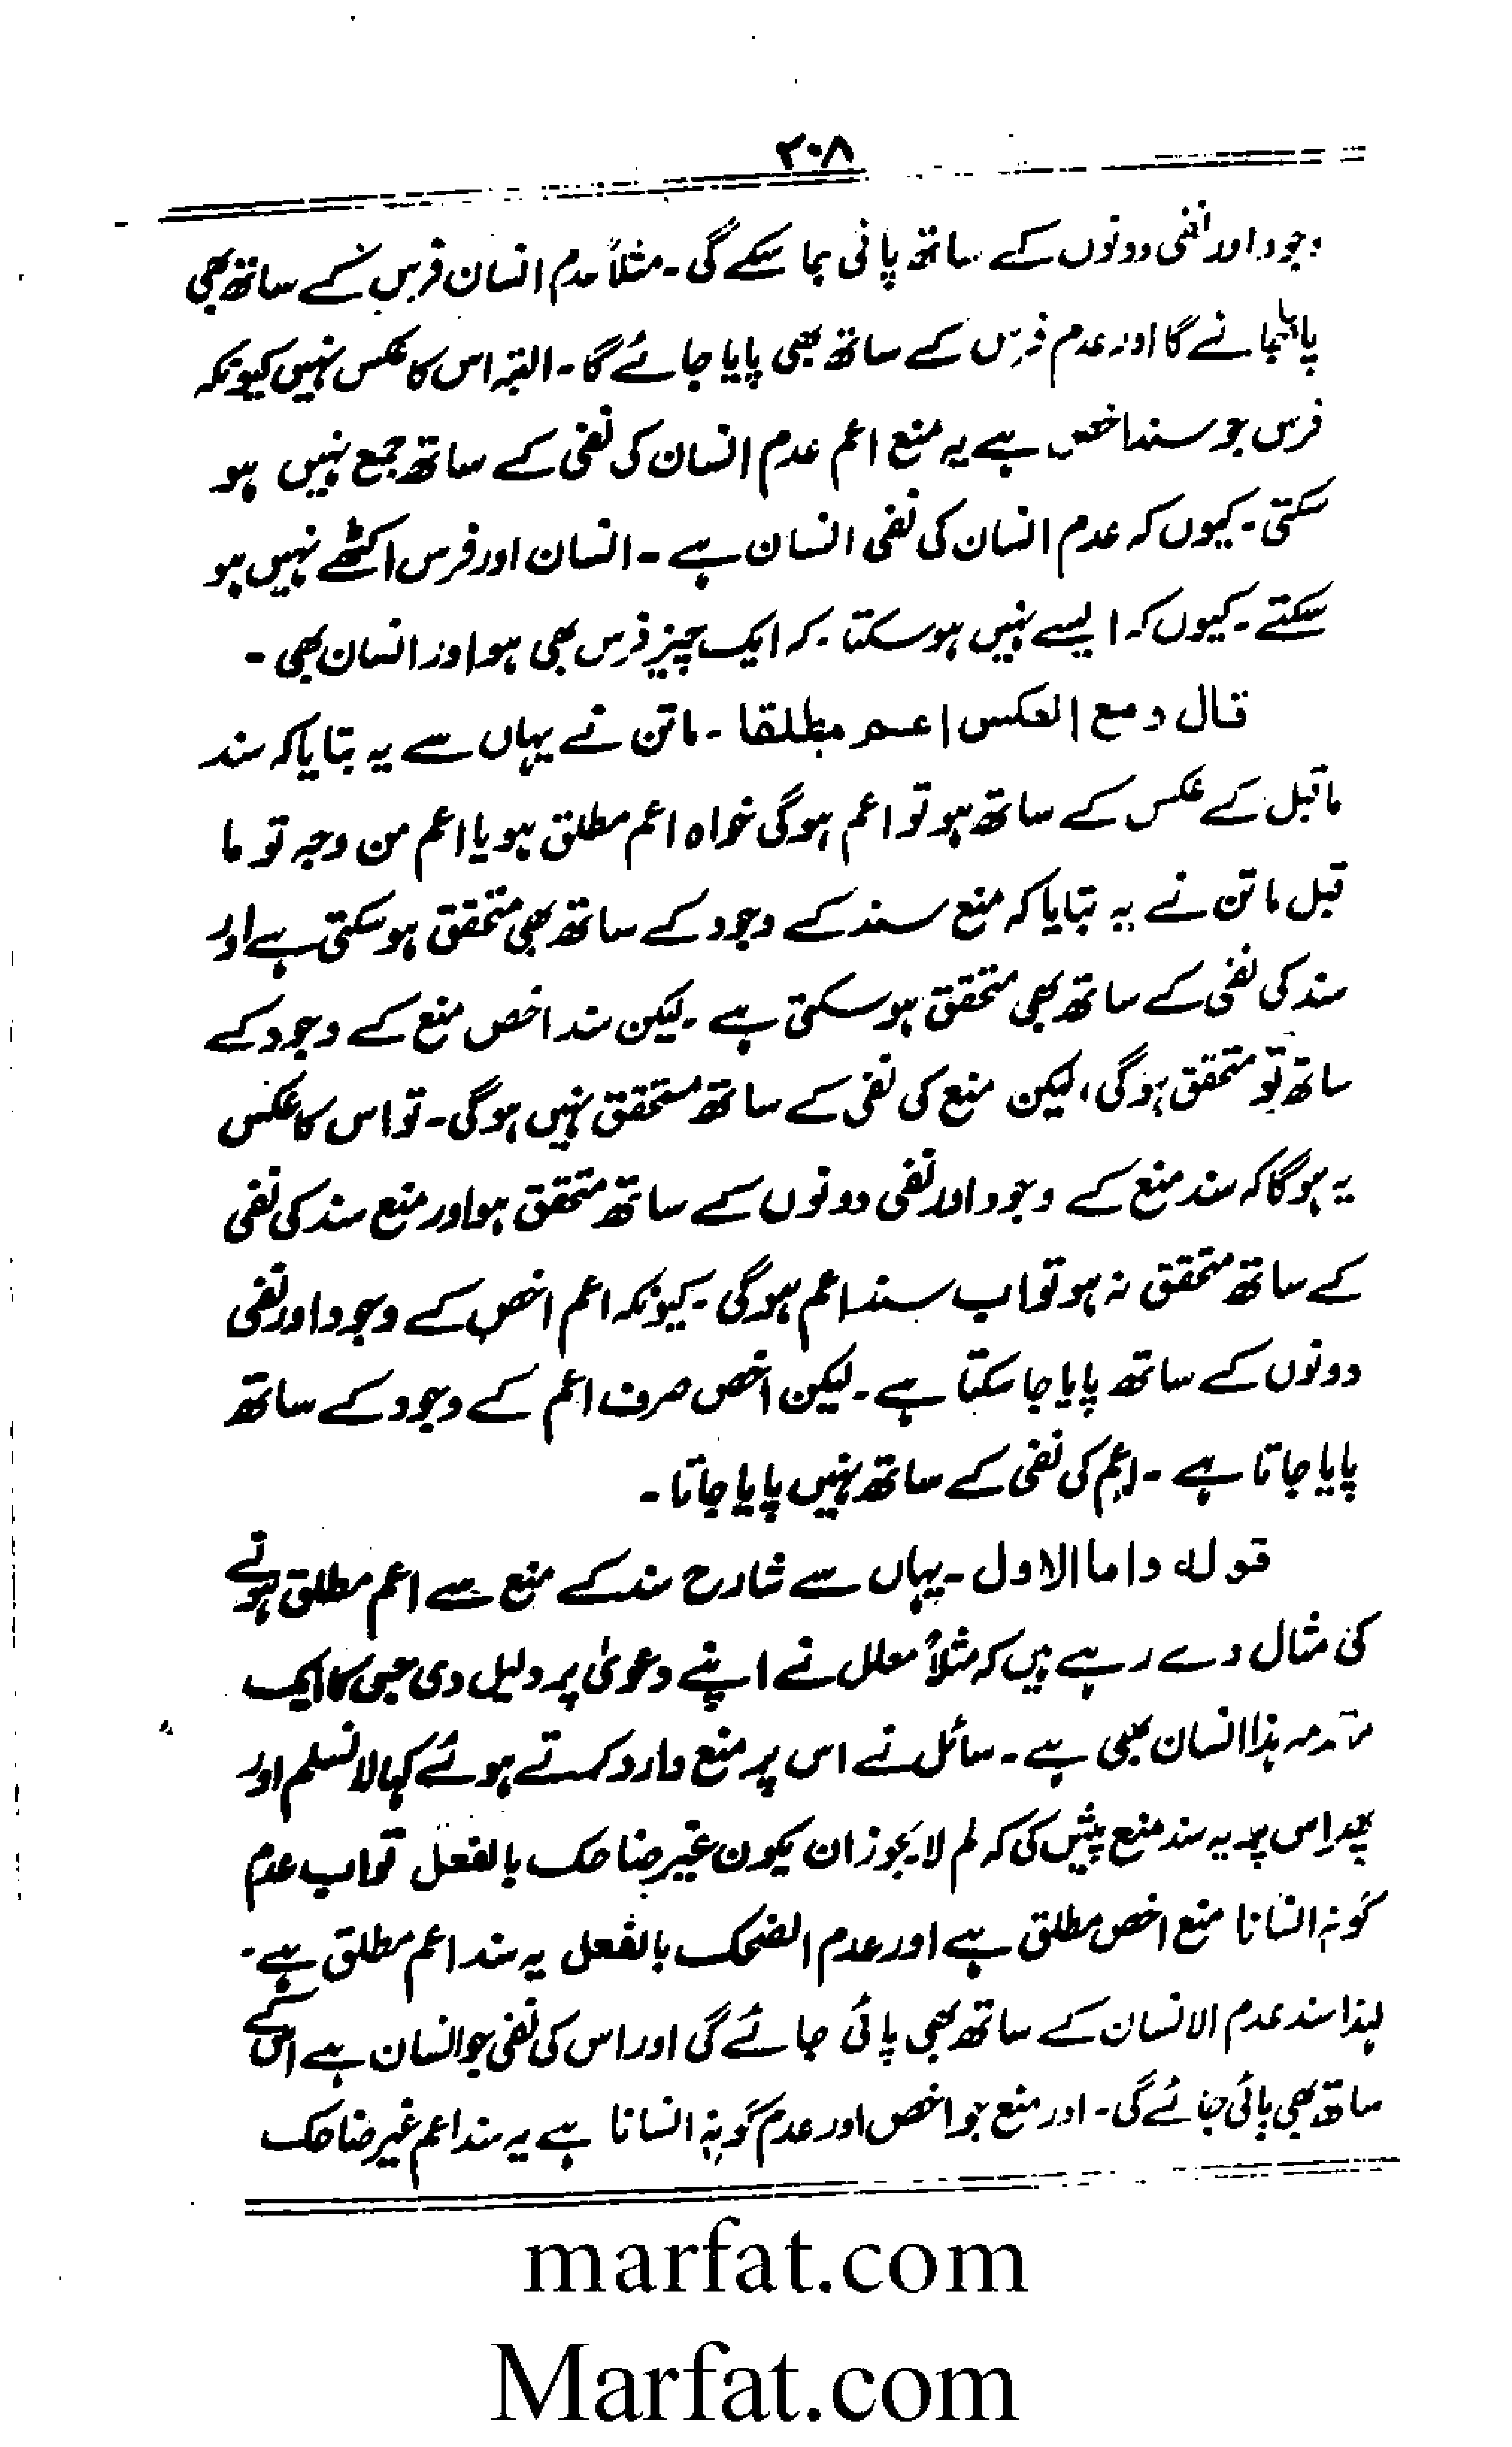 ۲۰۸
وجود اور نفی دونوں کے ساتھ پائی جا سکے گی۔ مثلاً عدم انسان فرس کے ساتھ بھی
پایا جائے گا اور عدم فرس کے ساتھ بھی پایا جائے گا۔ البتہ اس کا عکس نہیں کیونکہ
فرس جو سند اخص ہے یہ منع اعم عدم انسان کی نفی کے ساتھ جمع نہیں ہو
سکتی۔ کیوں کہ عدم انسان کی نفی انسان ہے۔ انسان اور فرس اکٹھے نہیں ہو
سکتے۔ کیوں کہ ایسے نہیں ہو سکتا۔ کہ ایک چیز فرس بھی ہو اور انسان بھی۔
قال ومع العکس اعم مطلقا۔ ماتن نے یہاں سے یہ بتایا کہ سند
ماقبل کے عکس کے ساتھ ہو تو اعم ہوگی خواہ اعم مطلق ہو یا اعم من وجہ تو ما
قبل ماتن نے یہ بتایا کہ منع سند کے وجود کے ساتھ بھی متحقق ہو سکتی ہے اور
سند کی نفی کے ساتھ بھی متحقق ہو سکتی ہے۔ لیکن سند اخص منع کے وجود کے
ساتھ تو متحقق ہوگی، لیکن منع کی نفی کے ساتھ متحقق نہیں ہوگی۔ تو اس کا عکس
یہ ہوگا کہ سند منع کے وجود اور نفی دونوں کے ساتھ متحقق ہو اور منع سند کی نفی
کے ساتھ متحقق نہ ہو تو اب سند اعم ہوگی۔ کیونکہ اعم اخص کے وجود اور نفی
دونوں کے ساتھ پایا جا سکتا ہے۔ لیکن اخص صرف اعم کے وجود کے ساتھ
پایا جاتا ہے۔ اعم کی نفی کے ساتھ نہیں پایا جاتا۔
قولہ واما الاول۔ یہاں سے شارح سند کے منع سے اعم مطلق ہونے
کی مثال دے رہے ہیں کہ مثلاً معلل نے اپنے دعویٰ پر دلیل دی جس کا ایک
مقدمہ ہذا انسان بھی ہے۔ سائل نے اس پر منع وارد کرتے ہوئے کہا لا نسلم اور
پھر اس پر یہ سند منع پیش کی کہ لم لا یجوز ان یکون غیر ضاحک بالفعل تو اب عدم
کونہ انسانا منع اخص مطلق ہے اور عدم الضحک بالفعل یہ سند اعم مطلق ہے۔
لہذا سند عدم الانسان کے ساتھ بھی پائی جائے گی اور اس کی نفی جو انسان ہے اس کے
ساتھ بھی پائی جائے گی۔ اور منع جو اخص اور عدم کونہ انسانا ہے یہ سند اعم غیر ضاحک
marfat.com
Marfat.com